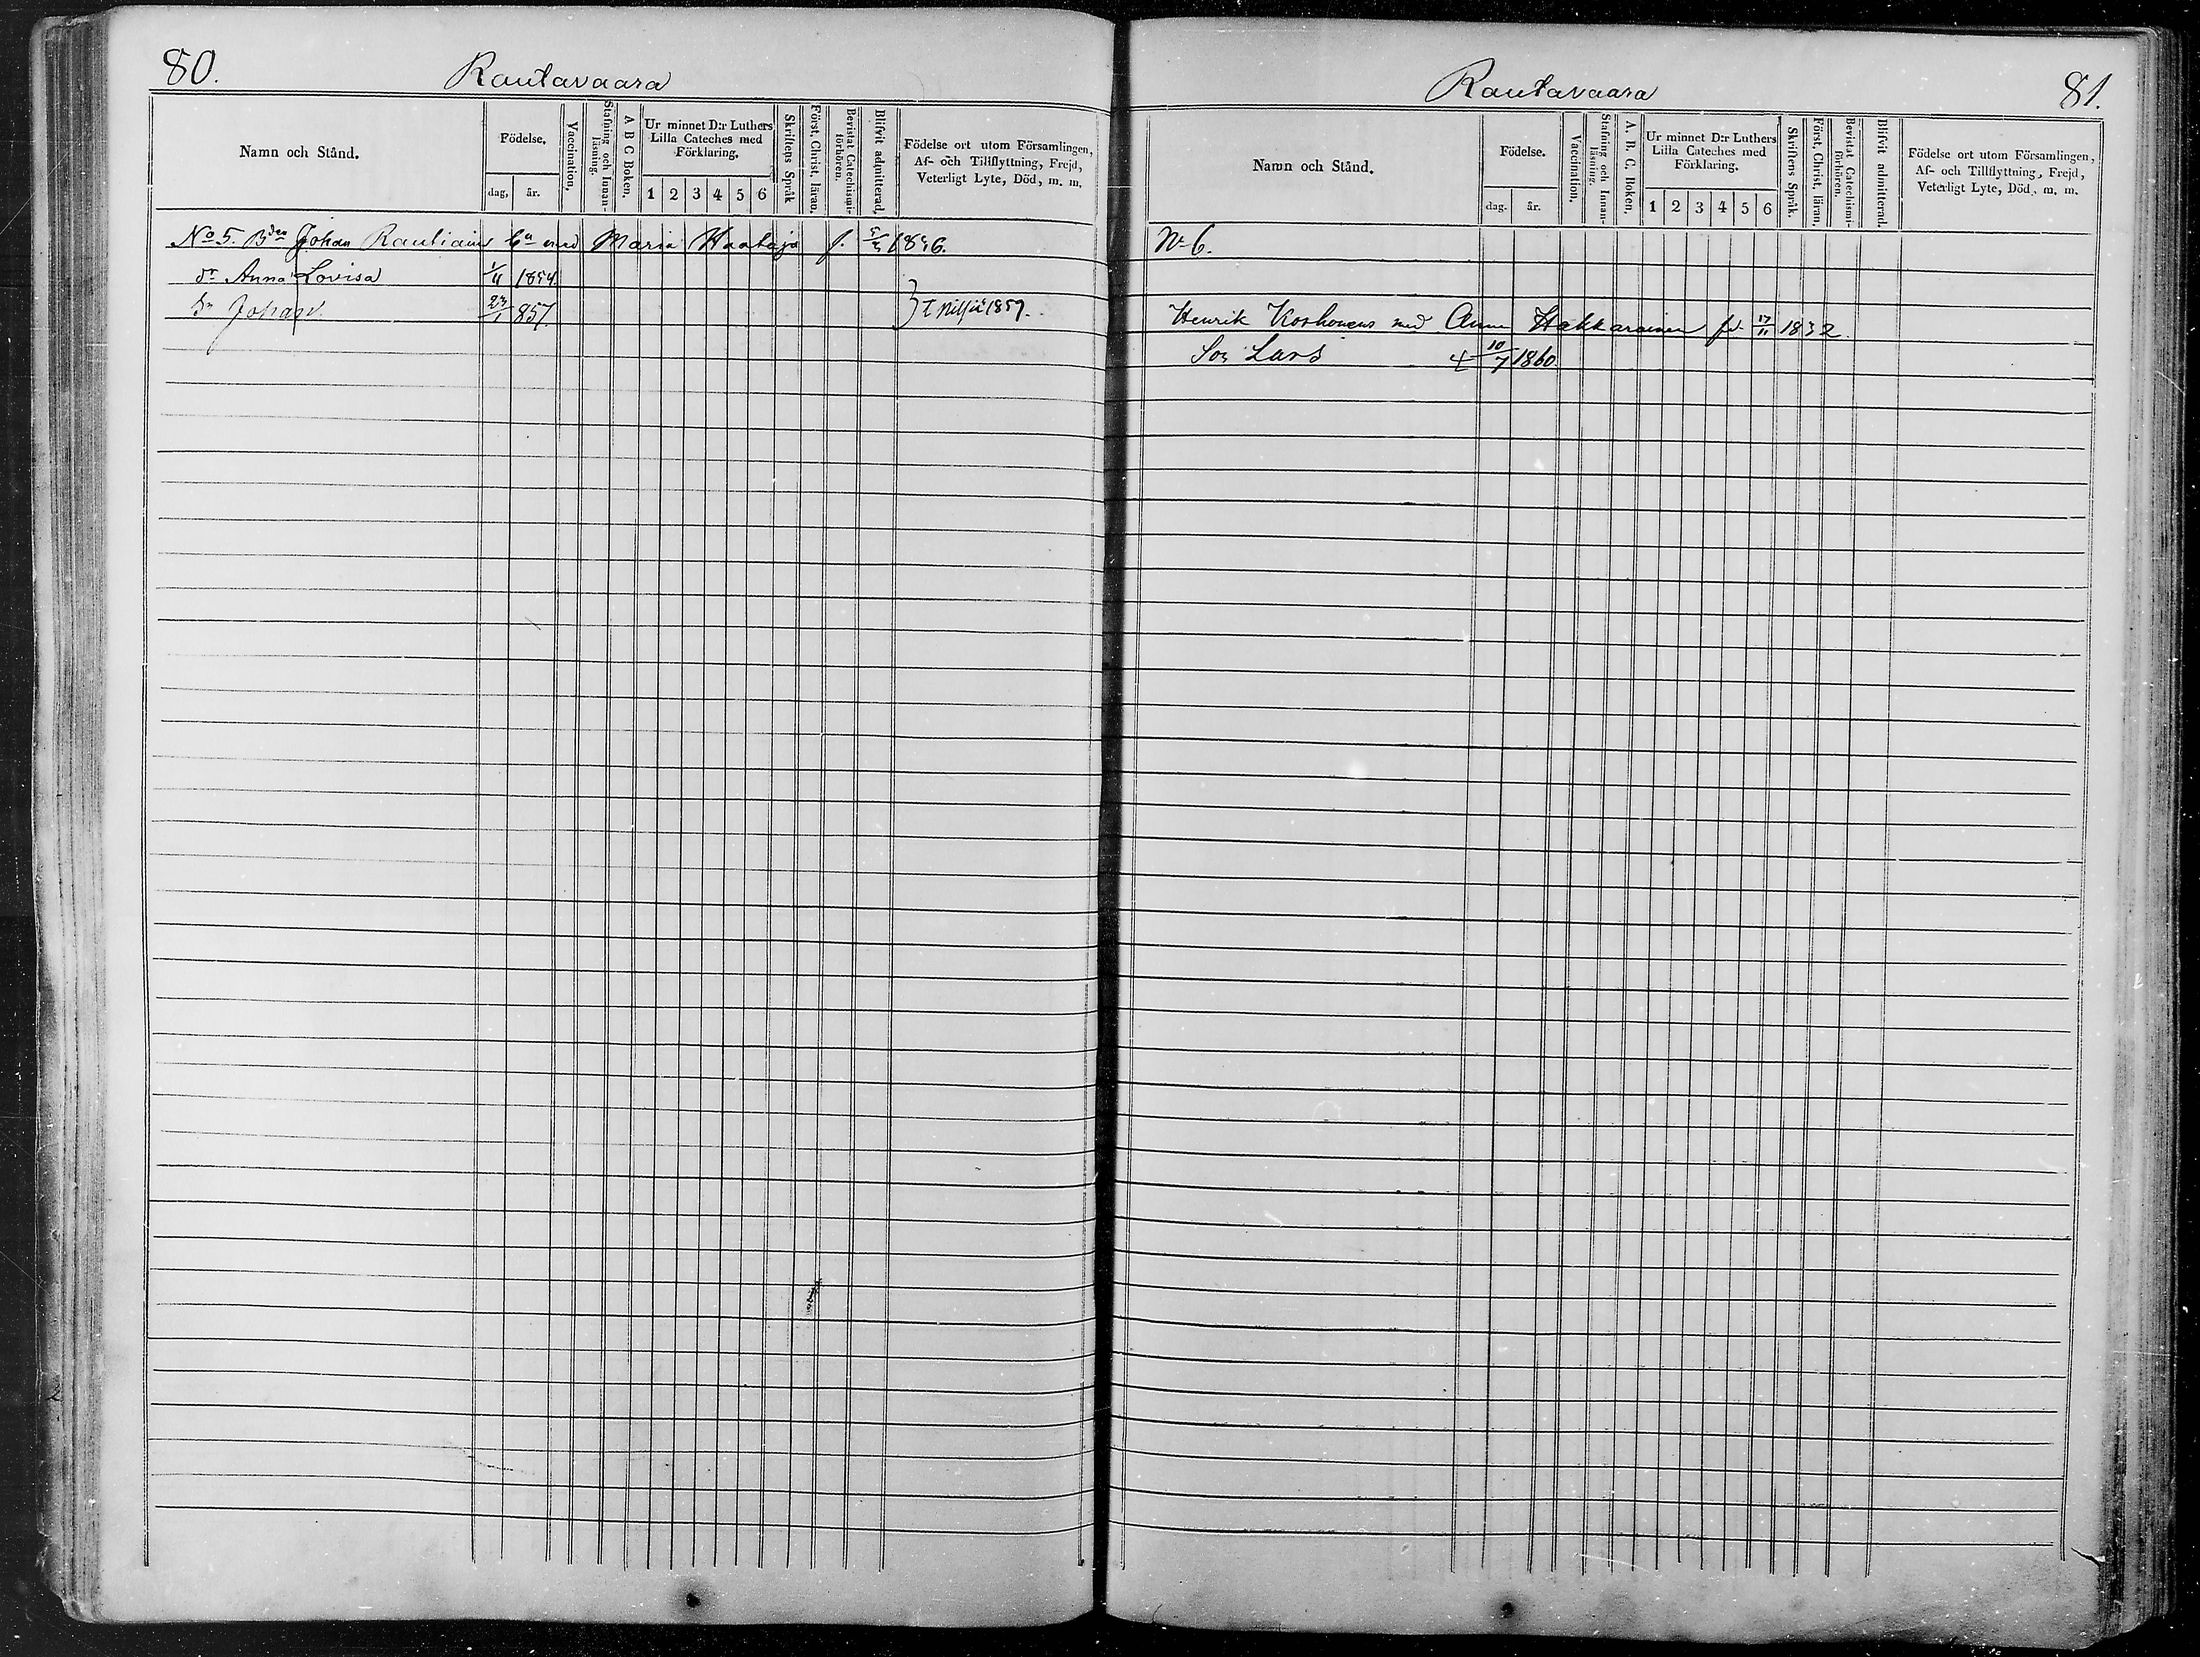 80.
Rautavaara
Namn och Stånd.
Födelse.
dag, år.
Vaccination,
Stafning och Innanläsning.
A B C Boken.
Ur minnet D:r Luthers Lilla Cateches med Förklaring.
1 2 3 4 5 6
Skriftens Språk
Först. Christ. läran.
Bevistat Catechismiförhören.
Blifvit admitterad.
Födelse ort utom Församlingen, Af- och Tillflyttning, Frejd, Veterligt Lyte, Död, m. m.
No 5. Bden Johan Rautiains med Maria Haataja f. 1836.
dr Anna Lovisa 1/11 1854
Sn Johan 23/1 857. t Nilsiä 1857.
Rautavaara
81.
Namn och Stånd.
Födelse.
dag. år.
Vaccination,
Stafning och Innanläsning.
A. B. C. Boken,
Ur minnet D:r Luthers Lilla Cateches med Förklaring.
1 2 3 4 5 6
Skriftens Språk.
Först. Christ. läran.
Bevistat Catechismiförhören.
Blifvit admitterad.
Födelse ort utom Församlingen, Af- och Tillflyttning, Frejd, Veterligt Lyte, Död, m. m.
No 6.
Henrik Korhonens med Anna Hakkarainen fd. 17/11 1832.
Son Lars 10/7 1860.